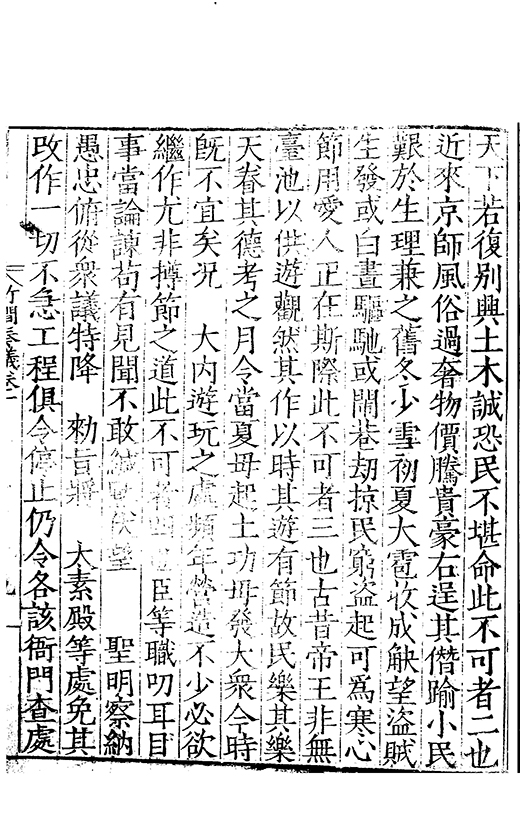 天下若復别興土木誠恐民不堪命此不可者二也
近來京師風俗過奢物價騰貴豪右逞其僭踰小民
艱於生理兼之舊冬少雪初夏大雹收成觖望盜賊
生發或白晝驅馳或閭巷劫掠民窮盜起可爲寒心
節用愛人正在斯際此不可者三也古昔帝王非無
臺池以供遊觀然其作以時其遊有節故民樂其樂
天眷其德考之月令當夏毋起土功毋發大衆今時
旣不宜矣况 大内遊玩之處頻年營造不少必欲
繼作尤非撙節之道此不可者四也臣等職叨耳目
事當論諫茍有見聞不敢緘默伏望 聖明察納
愚忠俯從衆議特降 勑旨將 大素殿等處免其
改作一切不急工程俱令停止仍令各該衙門查處
竹澗奏議卷一 九